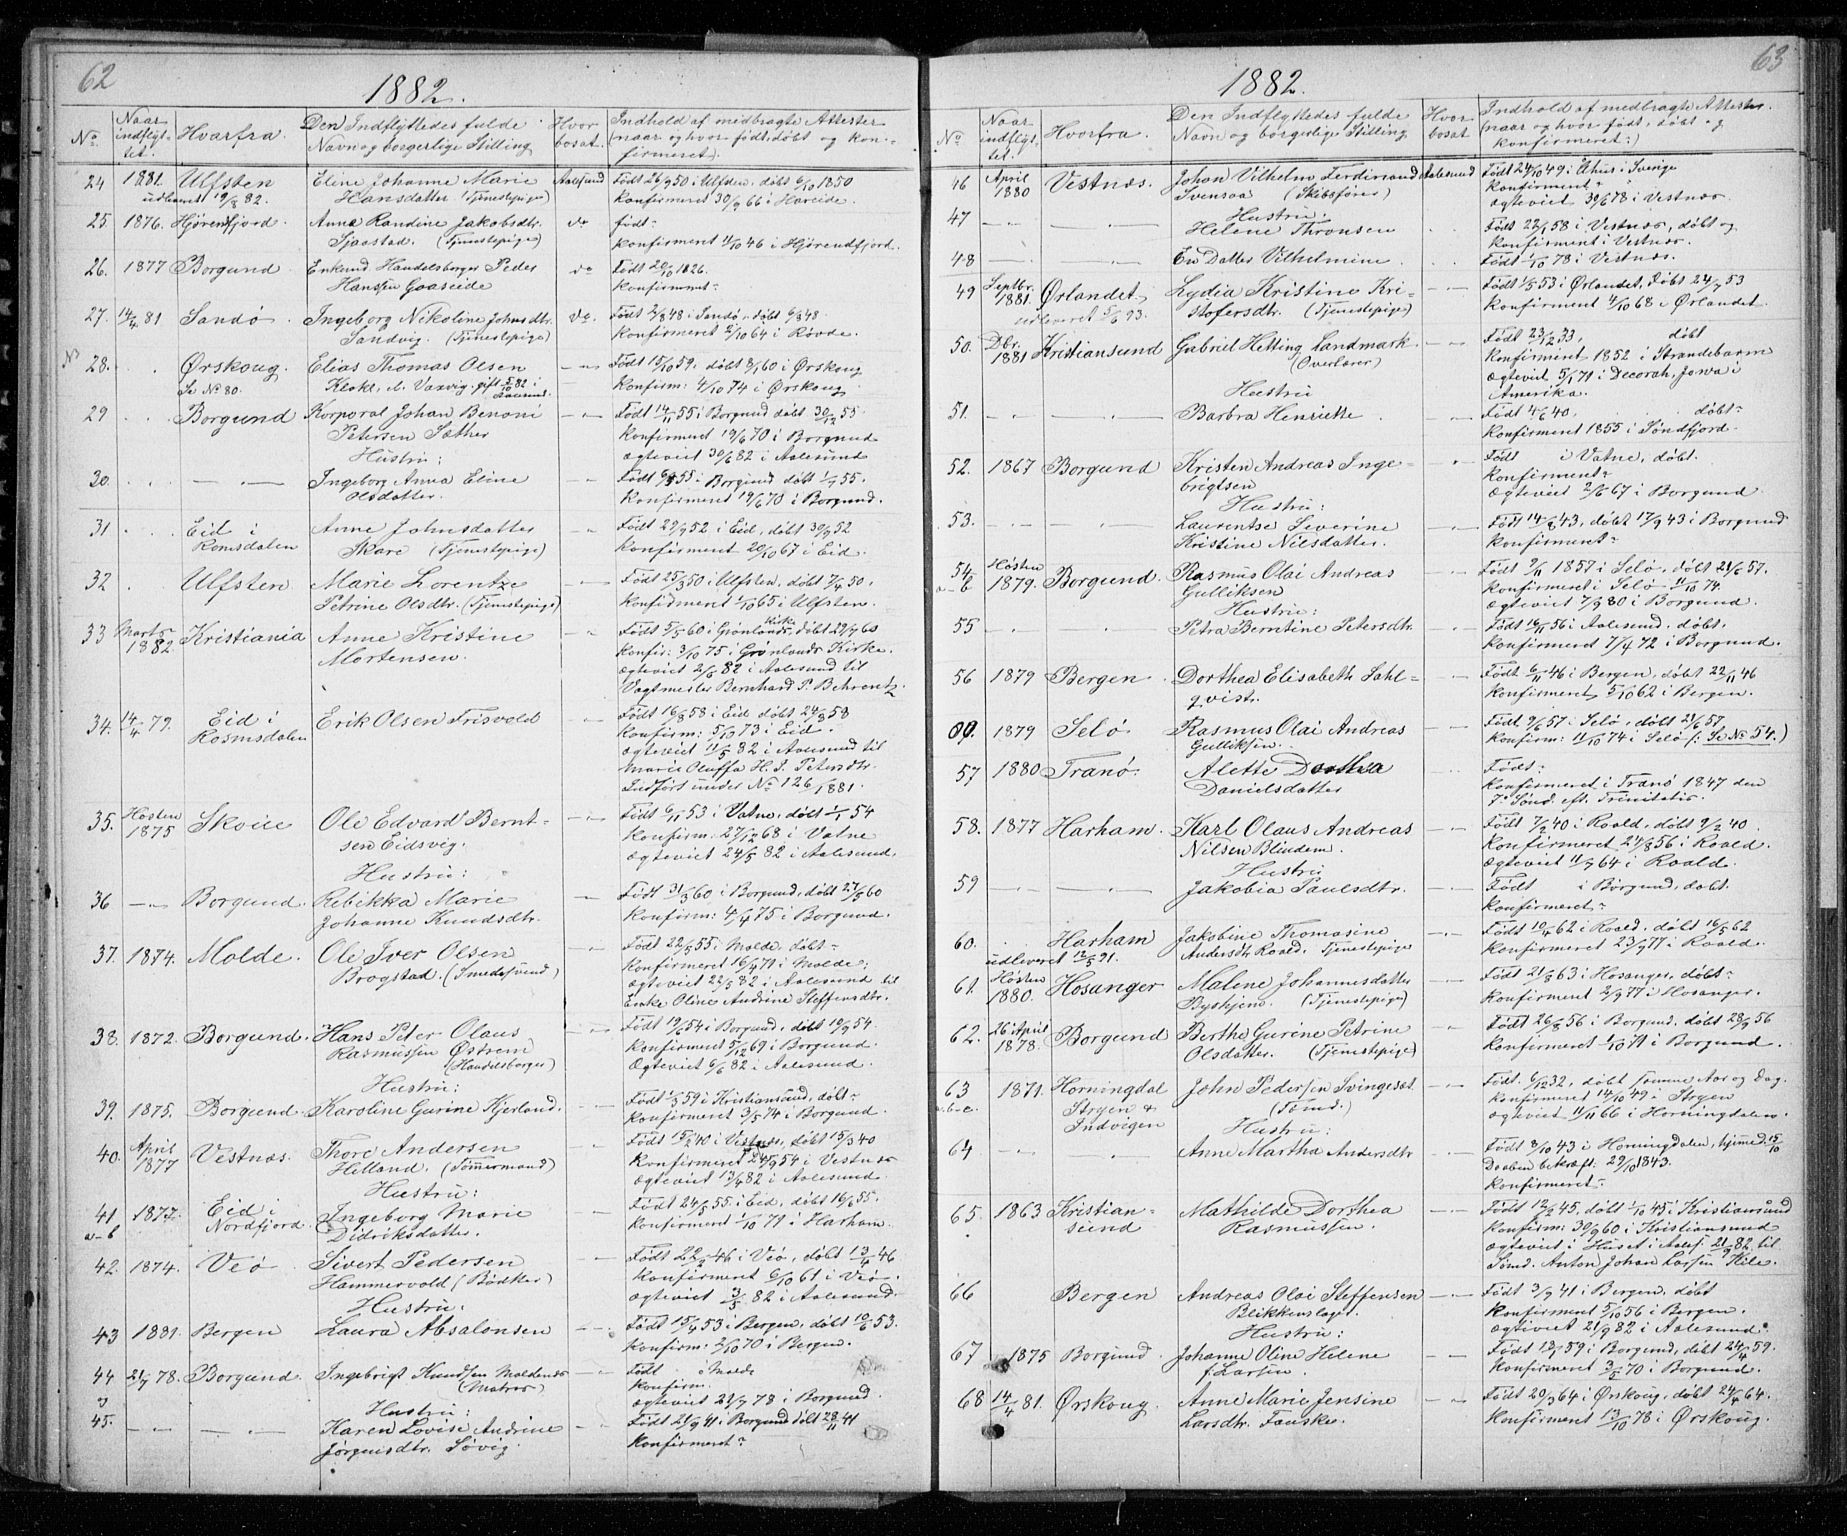 62
1882.
No. Naar indflyttet. Hvorfra. Den Indflyttedes fulde Navn og borgerlige Stilling Hvor bosat. Indhold af medbragte Attester (naar og hvor født, døbt og konfirmeret).
24 1881. Ulfsten Eline Johanne Marie Aalesund Født 26/9 50 i Ulfsten, døbt 6/10 1850
udleveret 19/8 82. Hansdatter (Tjenestepige) Konfirmeret 30/9 66 i Hareide.
25. 1876. Hjørenfjord. Anne Randine Jakobsdtr. do født-
Sjaastad. (Tjenestepige) Konfirmeret 11/10 46 i Hjørendfjord.
26. 1877 Borgund. Enkemd. Handelsborger Peder do Født 20/10 1826.
Hanssen Gaaseide Konfirmeret-
27. 14/4 81 Sandø. Ingeborg Nikoline Johnsdtr. do. Født 2/8 48 i Sandø, døbt 6/8 48.
Sandvig. (Tjenestepige) Konfirmeret 2/10 64 i Røvde.
28. Ørskoug. Elias Thomas Olsen Født 15/10 59, døbt 8/1 60 i Ørskoug
Se No 80. Konfirm: 4/10 74 i Ørskoug
29 Borgund Korporal Johan Benoni Født 14/11 55 i Borgund døbt 30/12 55.
Petersen Sæther Konfirmeret 19/6 70 i Borgund
Hustru: ægteviet 30/6 82 i Aalesund
30. Ingeborg Anna Eline Født 6/3 55 i Borgund døbt 1/4 55.
Olsdatter. Konfirmeret 19/6 70 i Borgund.
31 Eid i Anne Johnsdatter Født 29/9 52 i Eid, døbt 30/9 52
Romsdalen Skare (Tjenestepige) Konfirmeret 20/10 67 i Eid.
32 Ulfsten Marie Lorentze Født 25/3 50 i Ulfsten, døbt 7/4 50.
Petrine Olsdtr. (Tjenestepige) Konfirmeret 1/10 65 i Ulfsten.
33 Marts 1882 Kristiania Anne Kristine Født 5/5 60 i Grønlands Kirke, døbt 22/7 60
Mortensen. Konfir: 3/10 75 i Grønlands Kirke.
ægteviet 2/6 82 i Aalesund til
Vagtmester Bernhard P. Behrentz.
34. 14/4 79. Eid i Erik Olsen Frisvold Født 16/8 58 i Eid døbt 24/8 58
Rosmsdalen Konfirm: 5/10 73 i Eid.
ægteviet 11/5 82 i Aalesund til
Marie Oluffa H. J. Petersdtr.
Indført under No 126/1881.
35. Høsten 1875 Skoue Ole Edvard Bernt- Født 6/11 53 i Vatne, døbt 1/1 54
sen Eidsvig. Konfirm: 27/12 68 i Vatne
Hustru: ægteviet 24/5 82 i Aalesund.
36 Borgund. Rebikka Marie Født 31/3 60 i Borgund, døbt 27/5 60
Johanne Knudsdtr. Konfirm: 4/4 75 i Borgund.
37. 1874. Molde. Ole Iver Olsen Født 22/5 55 i Molde, døbt-
Brogstad. (Smedesvend) Konfirmeret 16/4 71 i Molde;
ægteviet 22/5 82 i Aalesund til
Enke Oline Andrine Steffensdtr.
38. 1872. Borgund. Hans Peter Olaus Født 19/6 54 i Borgund, døbt 10/9 54.
Rasmussen Østrem Konfirmeret 5/12 69 i Borgund.
(Handelsborger) Ægteviet 6/6 82 i Aalesund.
Hustru:
39. 1875. Borgund. Karoline Gurine Kjerland. Født 1/3 59 i Kristiansund, døbt-
Konfirmeret 3/5 74 i Borgund.
40. April 1877 Vestnæs. Thore Andersen Født 15/2 40 i Vestnæs, døbt 15/3 40
Helland. (Tømmermand) Konfirmeret 24/9 54 i Vestnæs
Hustru: ægteviet 13/6 82 i Aalesund.
41 a-b 1877. Eid i Ingeborg Marie Født 24/5 55 i Eid, døbt 16/6 55.
Nordfjord. Didriksdatter. Konfirmeret 1/10 71 i Harham.
42. 1874. Veø Sivert Pedersen Født 22/2 46 i Veø, døbt 13/4 46
Hammervold (Bødker) Konfirmeret 6/10 61 i Veø.
Hustru: ægteviet 3/5 82 i Aalesund.
43 1881. Bergen Laura Absalonsen Født 15/4 53 i Bergen, døbt 10/6 53.
Konfirm: 2/10 70 i Bergen.
44 21/7 78. Borgund. Ingebrigt Knudsen Moldenes Født i Molde
(Matros) Konfirm.
Hustru: ægteviet 22/9 78 i Borgund
45. Karen Lovise Andrine Født 21/9 41 i Borgund døbt 28/11 41
Jørgensdtr. Søvig. Konfirmeret-
63
1882.
No. Naar indflyttet. Hvorfra. Den Indflyttedes fulde Navn og borgerlige Stilling Hvor bosat Indhold af medbragte Attester. (naar og hvor født, døbt og konfirmeret:)
46 April 1880 Vestnæs. Johan Vilhelm Ferdinand Aalesund Født 24/10 49 i Åhus i Sverige
Svensen (Skibsfører) Konfirmeret-
Hustru: ægteviet 30/6 78 i Vestnæs.
47 Helene Thronsen Født 22/1 58 i Vestnæs, døbt og
Konfirmeret i Vestnæs.
48 En Datter Vilhelmine Født 1/10 78 i Vestnæs.
49 Septbr. 1881. Ørlandet, Lydia Kristine Kri- Født 1/5 53 i Ørlandet, døbt 24/7 53
udleveret 5/6 93. stofersdtr. (Tjenestepige) Konfirmeret 4/10 68 i Ørlandet.
50. Dbr. 1881 Kristiansund Gabriel Hetting Landmark Født 23/12 33, døbt
(Overlærer) Konfirmeret 1852 i Strandebarm
Hustru Ægteviet 5/1 71 i Decorah, Jowa i
Amerika.
51. Barbra Henriette Født 4/6 40, døbt-
Konfirmeret 1855 i Søndfjord.
52. 1867 Borgund Kristen Andreas Inge- Født i Vatne, døbt.
brigtsen Konfirmeret-
Hustru: Ægteviet 2/6 67 i Borgund.
53. Laurentse Severine Født 14/8 43, døbt 17/9 43 i Borgund.
Kristine Nilsdatter. Konfirmeret-
54 a-b Høsten 1879. Borgund. Rasmus Olai Andreas Født 9/11 1857 i Selø, døbt 21/6 57.
Gulliksen Konfirmeret i Selø 11/10 74.
Hustru: Ægteviet 7/9 80 i Borgund.
55 Petra Berntine Petersdtr. Født 16/11 56 i Aalesund, døbt.
Konfirmeret 7/4 72 i Borgund.
56 1879 Bergen Dorthea Elisabeth Sahl- Født 6/11 46 i Bergen, døbt 22/11 46
qvist. Konfirmeret 5/10 62 i Bergen.
1879 Selø Rasmus Olai Andreas Født 9/6 57. Selø, døbt 21/6 57
Gulliksen. Konfirm: 11/10 74 i Selø (: Se No 54.)
57 1880 Tranø. Alette Dorthea Født-
Danielsdatter Konfirmeret i Tranø 1847 den
7de Sønd. eft. Trinitatis.
58. 1877 Harham. Karl Olaus Andreas Født 7/2 40 i Roald, døbt 9/2 40.
Nilsen Blindem. Konfirmeret 24/8 56 i Roald.
Hustru Ægteviet 11/9 64 i Roald.
59 Jakobia Paulsdtr. Født i Borgund, døbt.
Konfirmeret-
60. Harham Jakobine Thomasine Født 10/4 62 i Roald, døbt 16/5 62
udleveret 12/5 91. Andersdtr Roald. Tjenestepige Konfirmeret 23/9 77 i Roald.
61. Høsten 1880. Hosanger Malene Johannesdatter Født 21/8 63 i Hosanger, døbt-
Byshjem. (Tjenestepige) Konfirmeret 2/9 77 i Hosanger.
62. 26 April 1878. Borgund Berthe Gurine Petrine Født 26/8 56 i Borgund, døbt 28/9 56
Olsdatter. (Tjenestepige) Konfirmeret 1/10 71 i Borgund.
63 a.b-c. 1871. Horningdal John Pedersen Svingeset Født. 6/12 32, døbt samme Aar og Dag.
Stryen & (Tømd.) Konfirmeret 14/10 49 i Stryen
Indvigen Hustru: ægteviet 11/11 66 i Horningdalen.
64 Anne Martha Andersdtr Født 8/10 43 i Horningdalen, hjemmed. 15/10
Daaben bekræft. 29/10 1843.
Konfirmeret-
65. 1863 Kristian- Mathilde Dorthea Født 12/2 45, døbt 1/10 45 i Kristiansund
sund Rasmussen. Konfirm: 30/9 60 i Kristiansund
Ægteviet i Huset i Aales. 21/9 82 til
Sømd. Anton Johan Larsen Hile.
66 Bergen Andreas Olai Steffensen Født 3/9 41 i Bergen, døbt
Blikkenslager. Konfirmeret 5/10 56 i Bergen.
Hustru: Ægteviet 21/9 82 i Aalesund.
67 1875 Borgund Johanne Oline Helene Født 13/2 59 i Borgund, døbt 24/4 59.
f. Larsen. Konfirmeret 3/5 70 i Borgund.
68 14/4 81. Ørskoug. Anne Marie Jensine Født 20/3 64 i Ørskoug, døbt 24/4 64.
Larsdtr. Fauske. Konfirmeret 13/10 78 i Ørskoug.